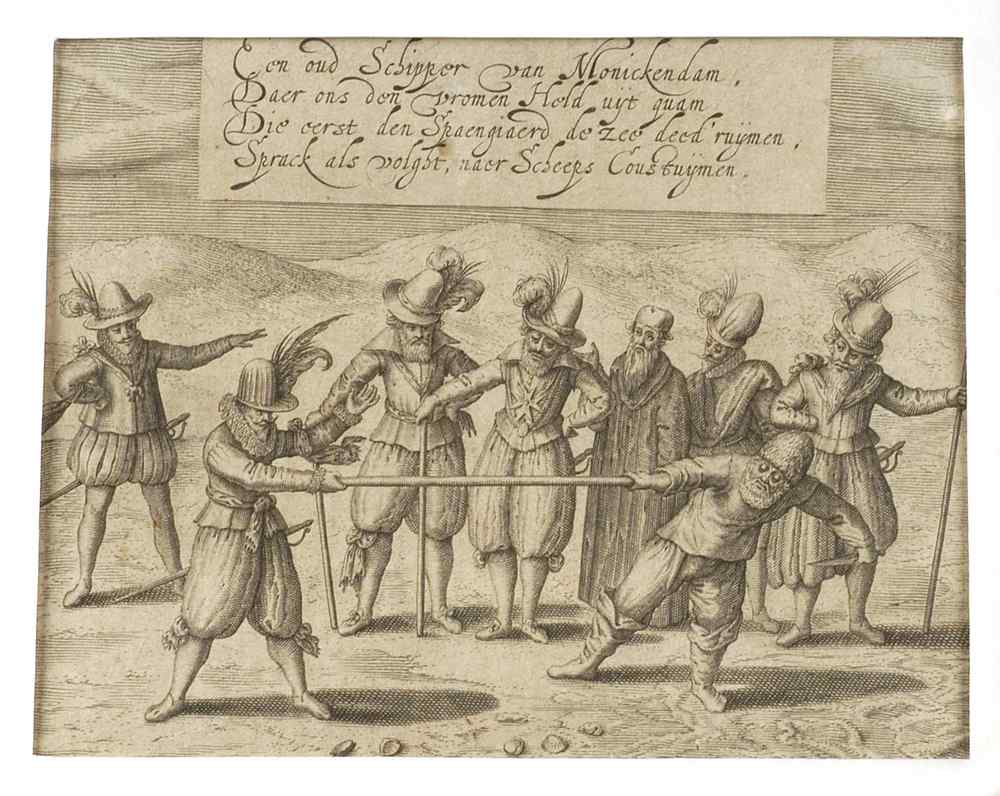 Een oud Schipper van Monickendam,
Daer ons den vromen Held uijt quam
Die eerst den Spaengiaerd de zee deed' ruijmen,
Sprack als volght, naer Scheeps Coustuijmen.